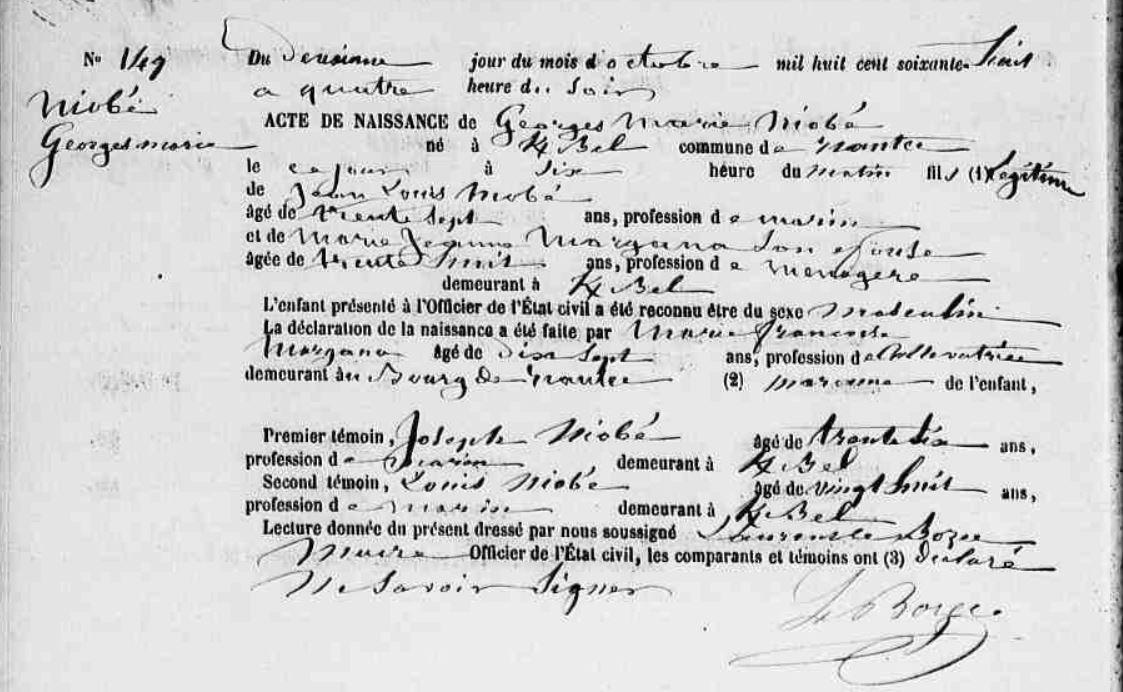 No 149
Niobé
Georges marie
Du Deuxième jour du mois d'octobre mil huit cent soixante-huit
a quatre heure du Soir
ACTE DE NAISSANCE de Georges Marie Niobé
né à K Bel commune de
le ce jour à Six heure du matin fils (1) Légitime
de Jean Louis Niobé
âgé de trente sept ans, profession de marin
et de Marie Jeanne Morgana son épouse
âgée de trente huit ans, profession de menagere
demeurant à K Bel
L'enfant présenté à l'Officier de l'État civil a été reconnu être du sexe Masculin
La déclaration de la naissance a été faite par Marie françoise
Morgana âgé de Dix Sept ans, profession de Cultivatrice
demeurant au Bourg de (2) de l'enfant,
Premier témoin, Joseph Niobé âgé de trente six ans,
profession de marin demeurant à K Bel
Second témoin, Louis Niobé âgé de vingt huit ans,
profession de marin demeurant à K Bel
Lecture donnée du présent dressé par nous soussigné
Maire Officier de l'État civil, les comparants et témoins ont (3) déclaré
Ne Savoir Signer